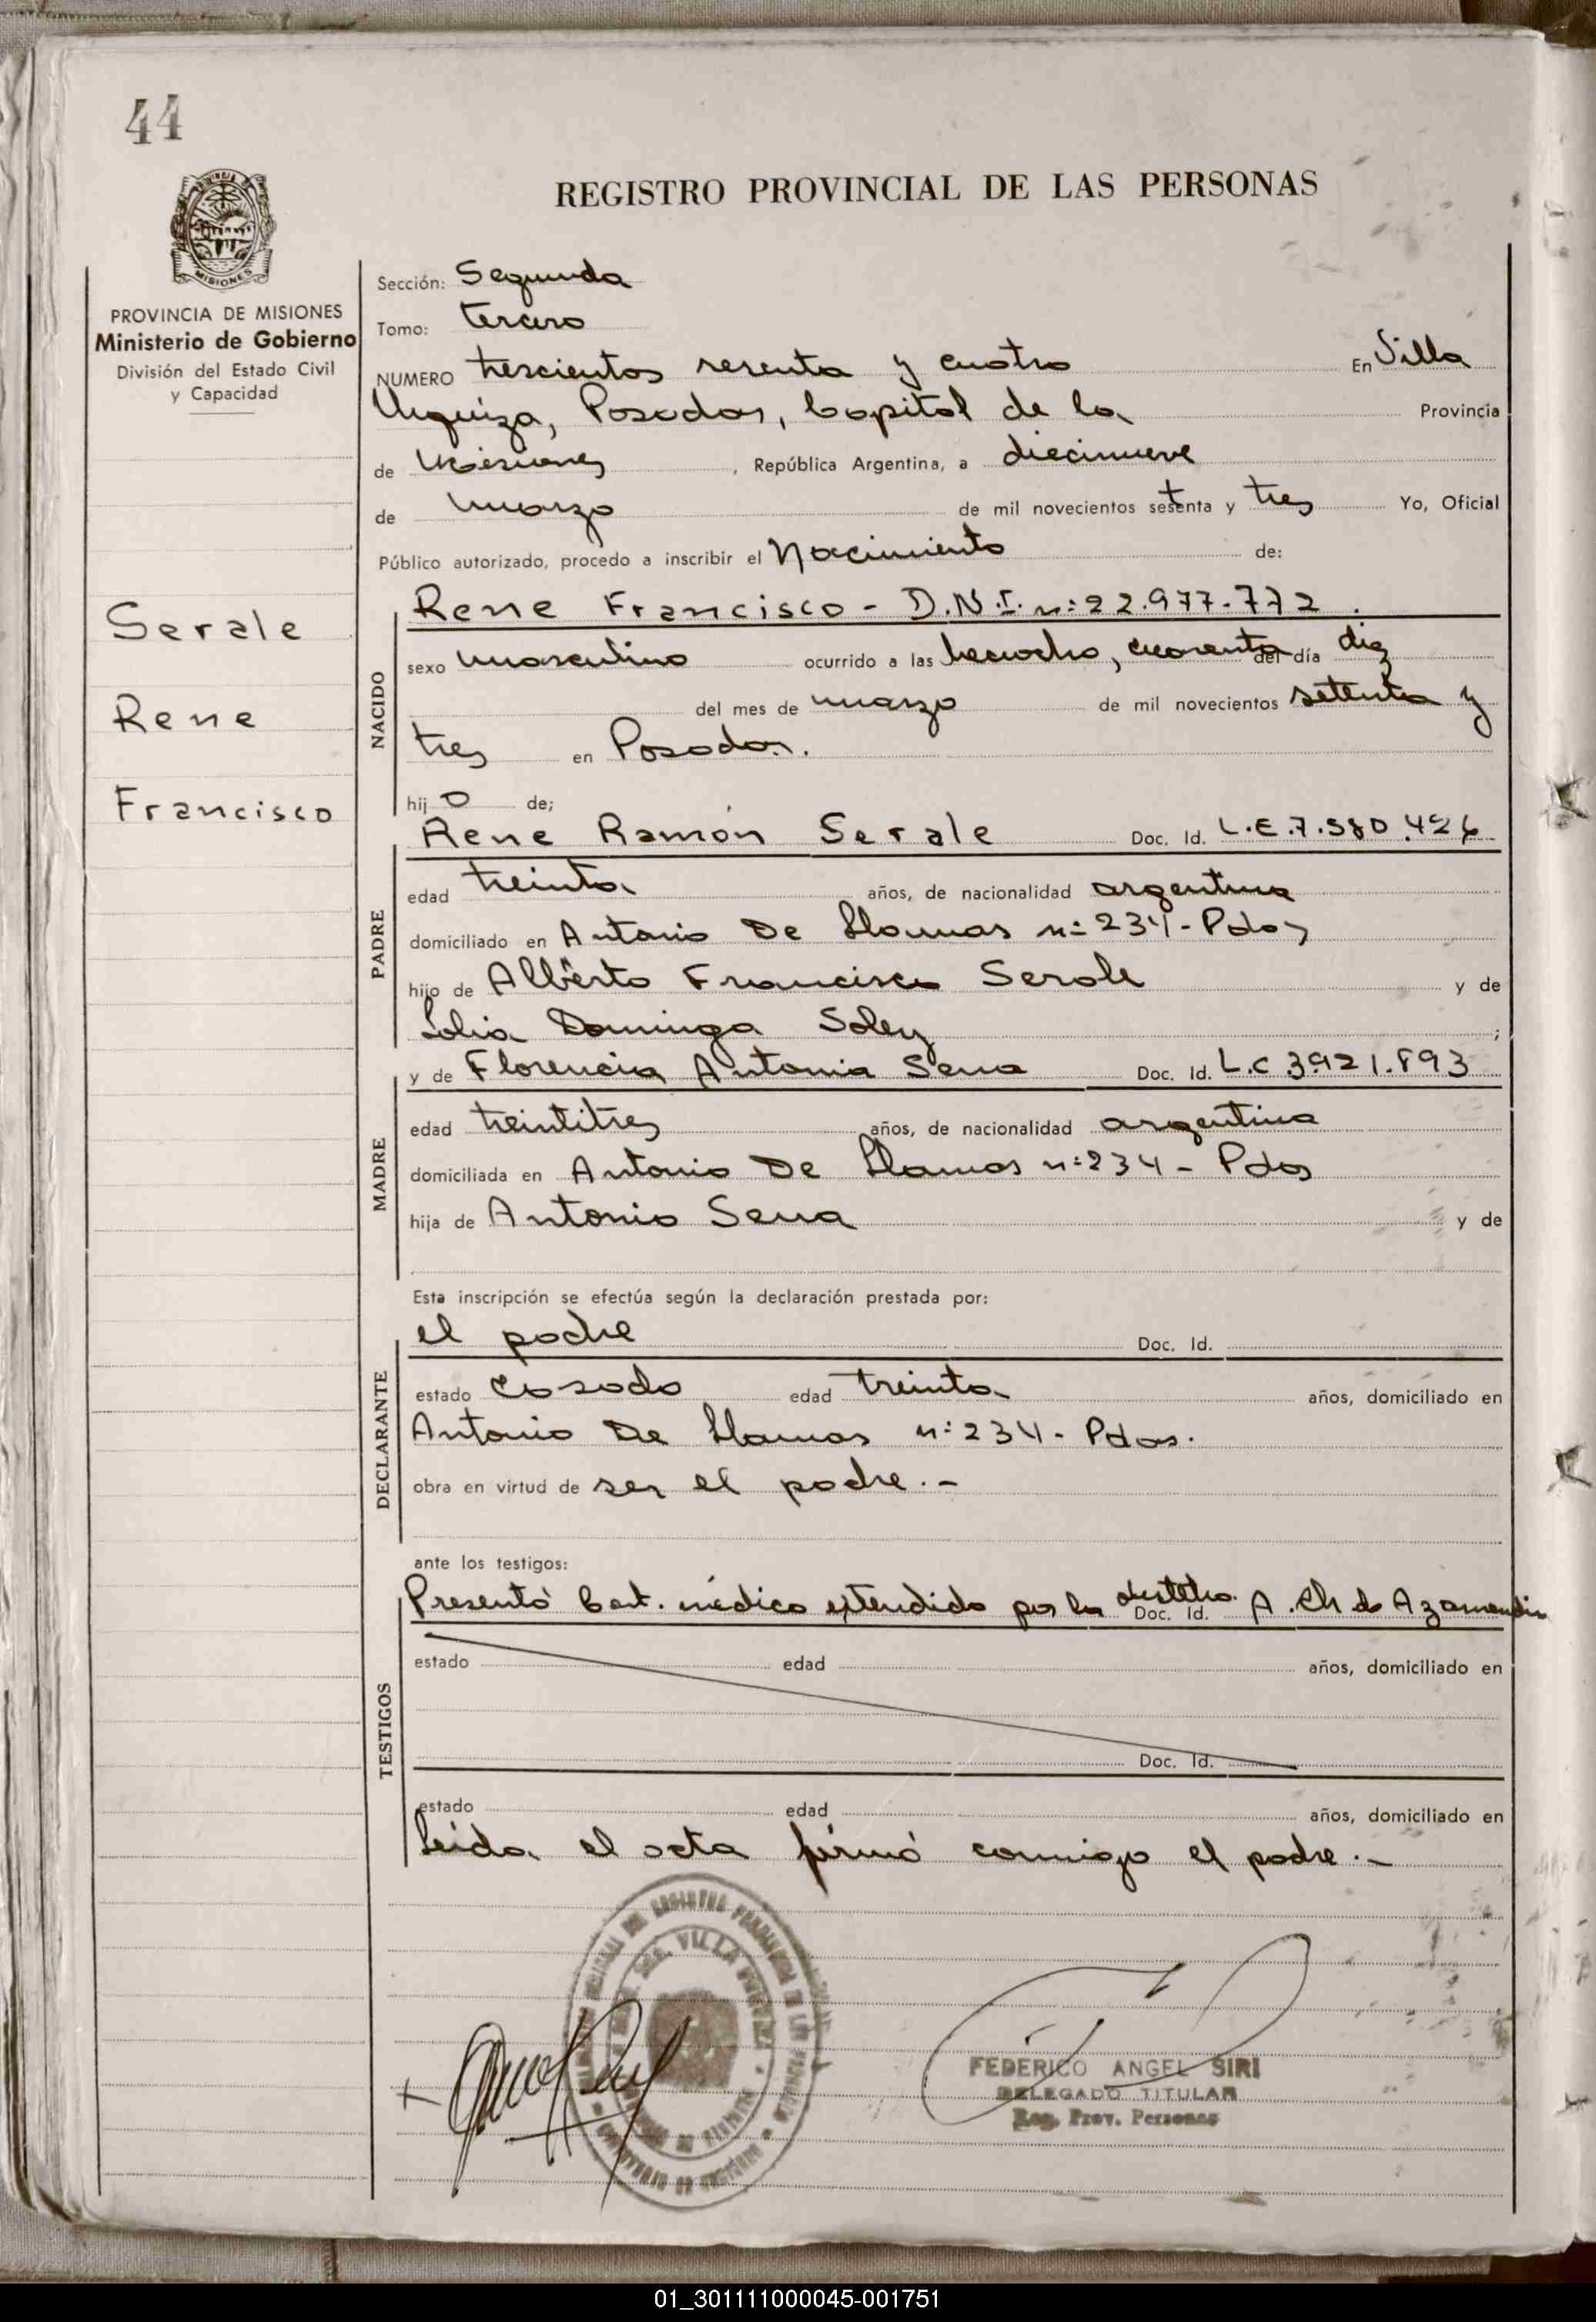 44
REGISTRO PROVINCIAL DE LAS PERSONAS
PROVINCIA DE MISIONES
Ministerio de Gobierno
División del Estado Civil
y Capacidad
Serale
Rene
Francisco
Sección: Segunda
Tomo: tercero
NUMERO trescientos sesenta y cuatro En Villa
Urquiza, Posadas, Capital de la Provincia
de Misiones, República Argentina, a diecinueve
de marzo de mil novecientos setenta y tres Yo, Oficial
Público autorizado, procedo a inscribir el Nacimiento de:
NACIDO
Rene Francisco - D.N.I. n: 22.977.772.
sexo masculino ocurrido a las , cuarenta del día diez
del mes de marzo de mil novecientos setenta y
tres en Posadas.
hijo de;
PADRE
Rene Ramón Serale Doc. Id. L.E.7.580.426
edad treinta años, de nacionalidad argentina
domiciliado en Antonio De Llamas n: 234 - Pdas
hijo de Alberto Francisco Serale y de
Dominga Soley ;
MADRE
y de Florencia Antonia Sena Doc. Id. L.C 3.921.893
edad treintitres años, de nacionalidad argentina
domiciliada en Antonio De Llamas n: 234 - Pdas
hija de Antonio Sena y de
Esta inscripción se efectúa según la declaración prestada por:
DECLARANTE
el padre Doc. Id.
estado casado edad treinta años, domiciliado en
Antonio De Llamas n: 234 - Pdas.
obra en virtud de ser el padre.-
ante los testigos:
TESTIGOS
Presentó Cert. médico extendido por la Doc. Id. A. Ch de
estado edad años, domiciliado en
Doc. Id.
estado edad años, domiciliado en
Leida el acta firmó conmigo el padre.-
FEDERICO ANGEL SIRI
DELEGADO TITULAR
Reg. Prov. Personas
01_301111000045-001751